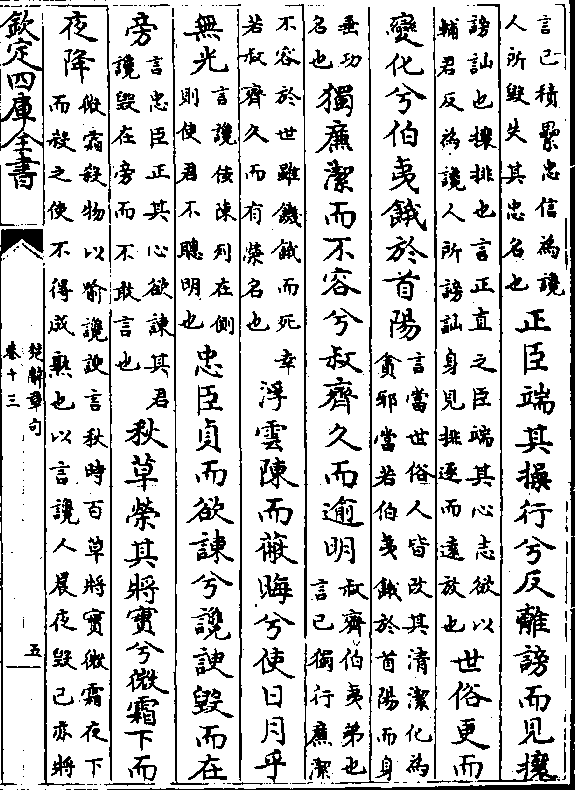 言己積累忠信為讒
人所毀失其忠名也
正臣端其操行兮反離謗而見攘
謗訕也攘排也言正直之臣端其心志欲以
輔君反為讒人所謗訕身見排逐而遠放也
世俗更而
變化兮伯夷餓於首陽
言當世俗人皆改其清潔化為
貪邪當若伯夷餓於首陽而身
垂功
名也
獨廉潔而不容兮叔齊久而逾明
叔齊伯夷弟也
言己獨行廉潔
不容於世雖饑餓而死幸
若叔齊久而有榮名也
浮雲陳而蔽晦兮使日月乎
無光
言讒佞陳列在側
則使君不聰明也
忠臣貞而欲諫兮讒諛毀而在
旁
言忠臣正其心欲諫其君
讒毀在旁而不敢言也
秋草榮其將實兮微霜下而
夜降
微霜殺物以喻讒諛言秋時百草將實微霜夜下
而殺之使不得成熟也以言讒人晨夜毀己亦將
欽定四庫全書
楚辭章句
卷十三
五